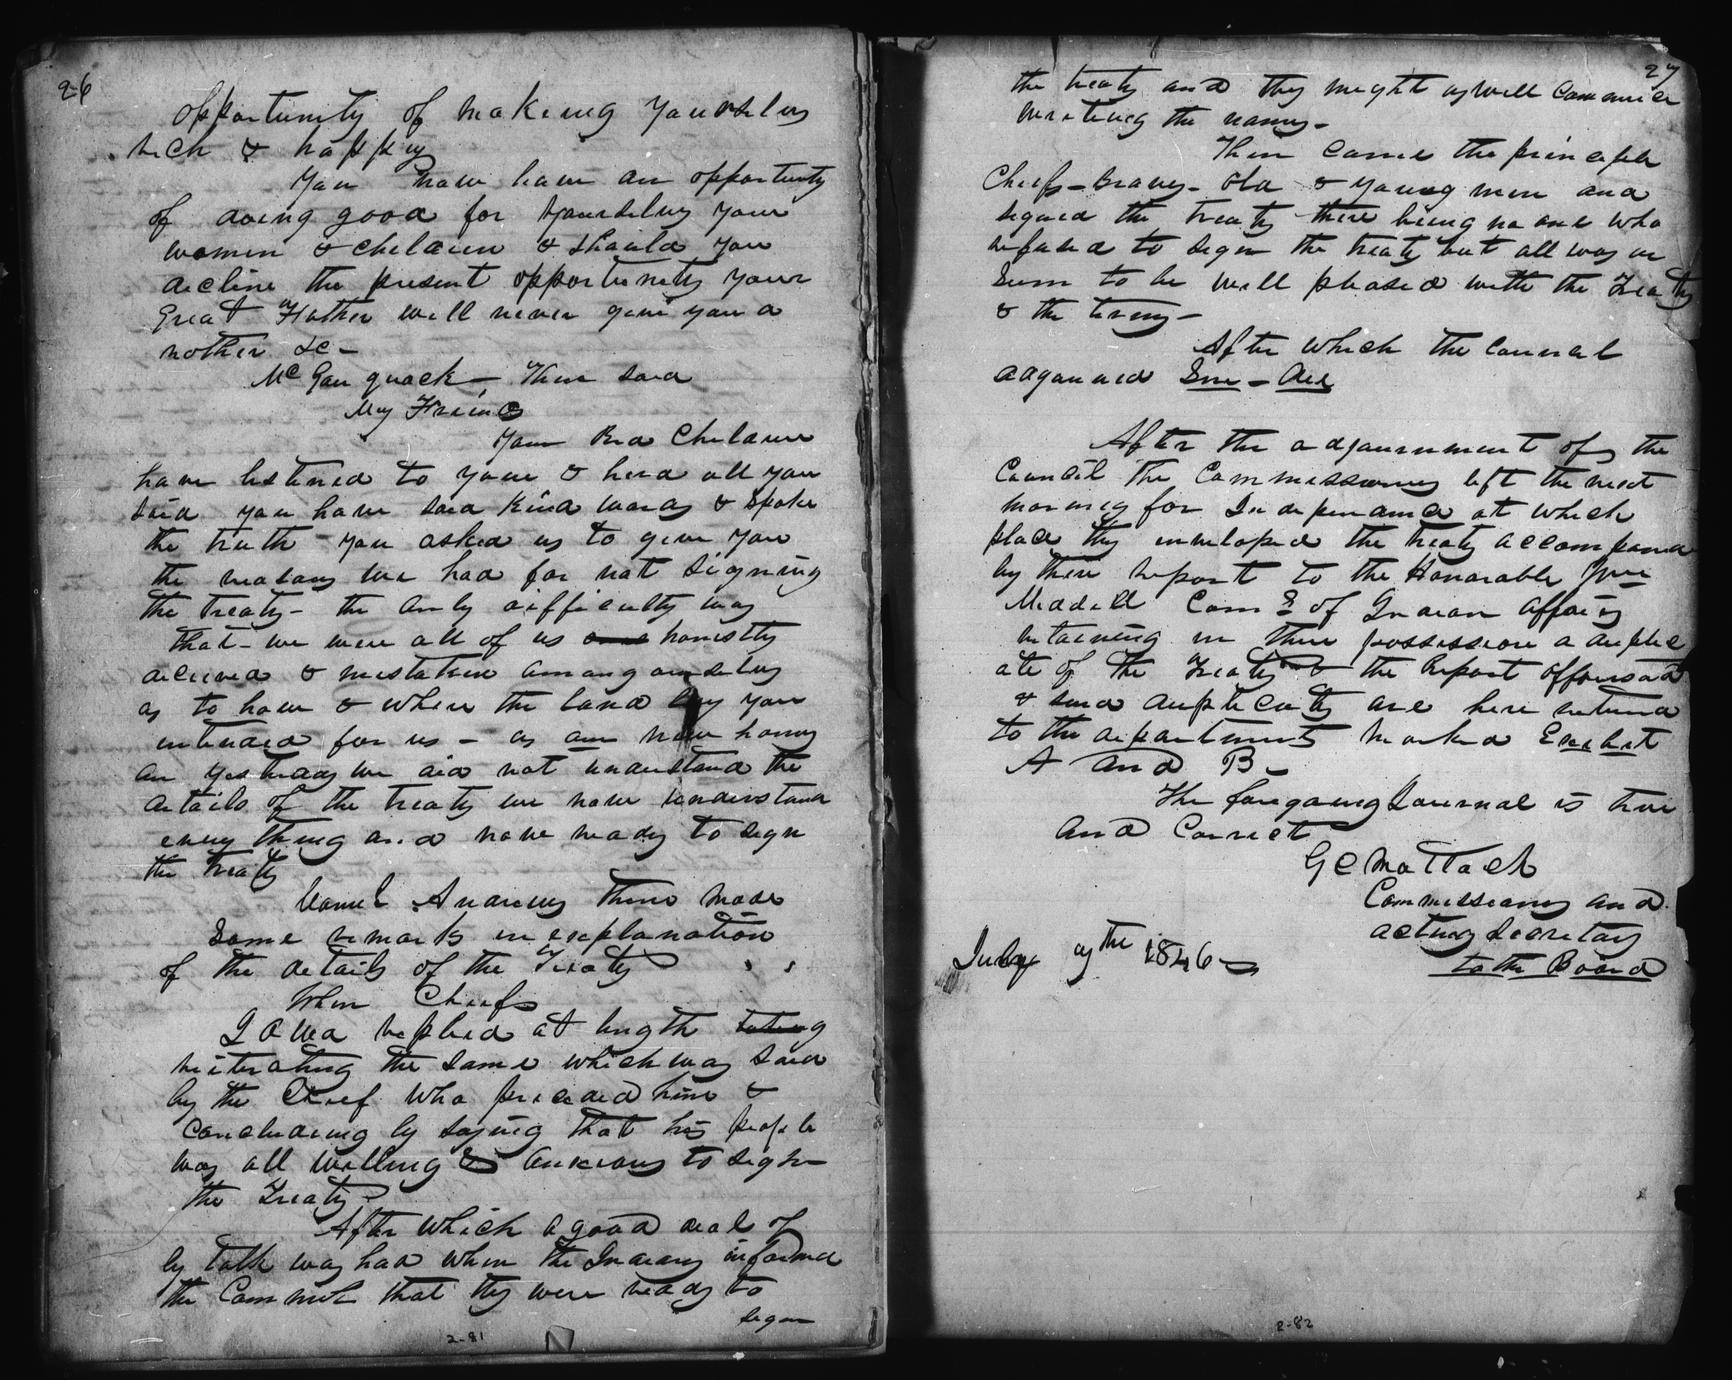 26
opportunity of making yourselvs
rich & happy
You now have an opportunity
of doing good for yourselvs your
women & children & should you
decline the present opportunity your
Great Father will never give you a
nother &c -
McGau quack - Then said
My Friend
Your Red Children
have listened to you & herd all you
said you have said kind words & spoke
the truth you asked us to give you
the reasons we had for not signing
the Treaty - the only difficulty was
that - we were all of us honestly
decieved & mistaken among ourselvs
as to how & where the land lay you
intended for us - as our new homes
on yesterday we did not understand the
details of the treaty we now understand
every thing and now ready to sign
the treaty
Andrews then made
some remarks in explanation
of the details of the Treaty
When Chiefs
Iowa replied at length
reiterating the same which was said
by the Chief who preceded him &
concluding by saying that his people
was all willing & anxious to sign
the Treaty
After which a good deal of
by talk was had when the Indians informed
the that they were ready to
sign
2-81
27
the treaty and they might as well commence
writing the names -
Then came the principle
Chiefs - Braves - Old & young men and
signed the treaty there being no one who
refused to sign the treaty but all was or
seem to be well pleased with the Treaty
& the terms -
After which the Council
adjourned Sine - Die
After the adjournment of the
Council the Commissioners left the next
morning for Independance at which
place they inveloped the treaty accompaned
by there report to the Honorable Wm
Medill Comr of Indian Affairs
retaining in there possession a duplic
ate of the Treaty & the Report afforsaid
& said duplicats are here returned
to the departments marked Exibit
A and B -
The foregoing Journal is true
and Correct
G C Matlock
Commissioner and
acting Secretary
to the Board
July 9th 1846
2-82